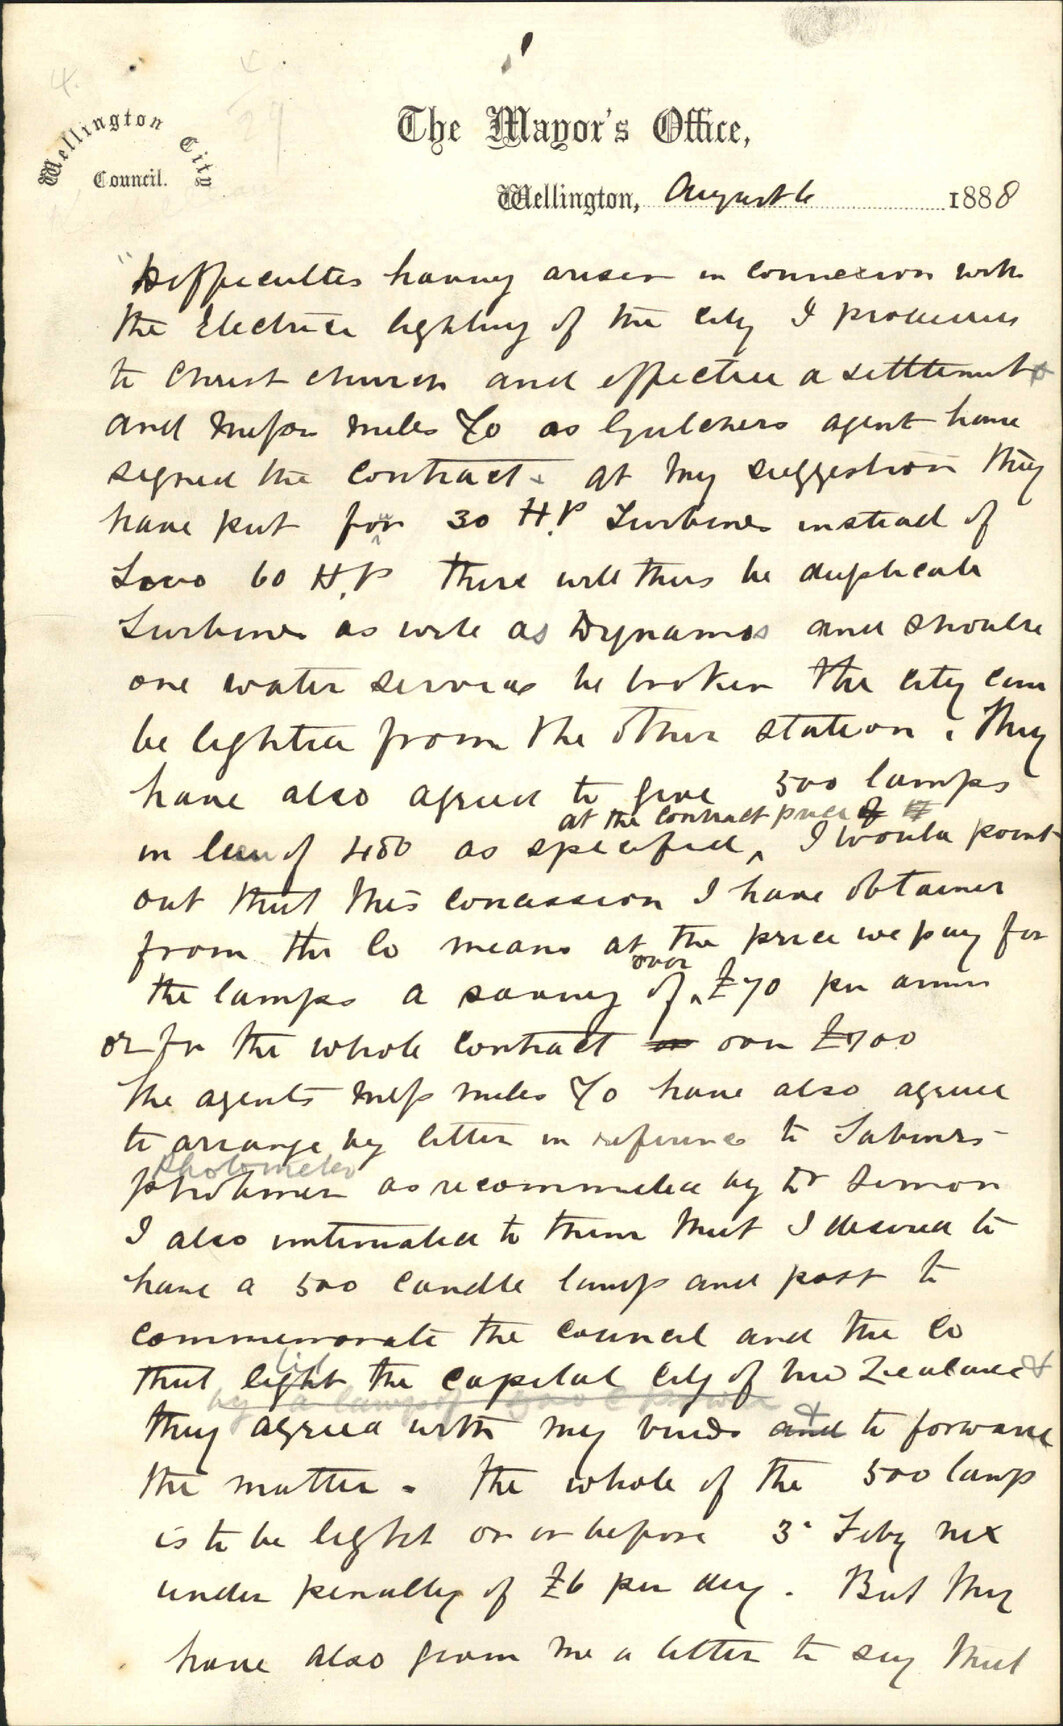 Wellington City
Council.
The Mayor's Office,
Wellington, August 6 1888
"Difficulties having arisen in connexion with
the Electric lighting of the city I proceeded
to Christchurch and effected a settlement
and Messrs Miles & Co as Gulchers agent have
signed the contract. At my suggestion they
have put four 30 H.P Turbines instead of
Two 60 H.P There will thus be duplicate
Turbines as well as Dynamos and should
one water service be broken the city can
be lighted from the other station. They
have also agreed to give 500 lamps
at the contract price of
in lieu of 480 as specified, I would point
out that this concession I have obtained
from the Co means at the price we pay for
over
the lamps a saving of £70 per annum
or for the whole contract over £700
The agents Messrs Miles & Co have also agreed
to arrange by letter in reference to
Photometer
as recommended by Dr Lemon
I also intimated to them that I desired to
have a 500 candle lamp and post to
commemorate the council and the Co
that light the capital city of New Zealand &
by a lamp of 500 c power
they agreed with my views and to forward
the matter. The whole of the 500 lamp
is to be light on or before 3d Feby next
under penalty of £6 per day. But they
have also given me a letter to say that